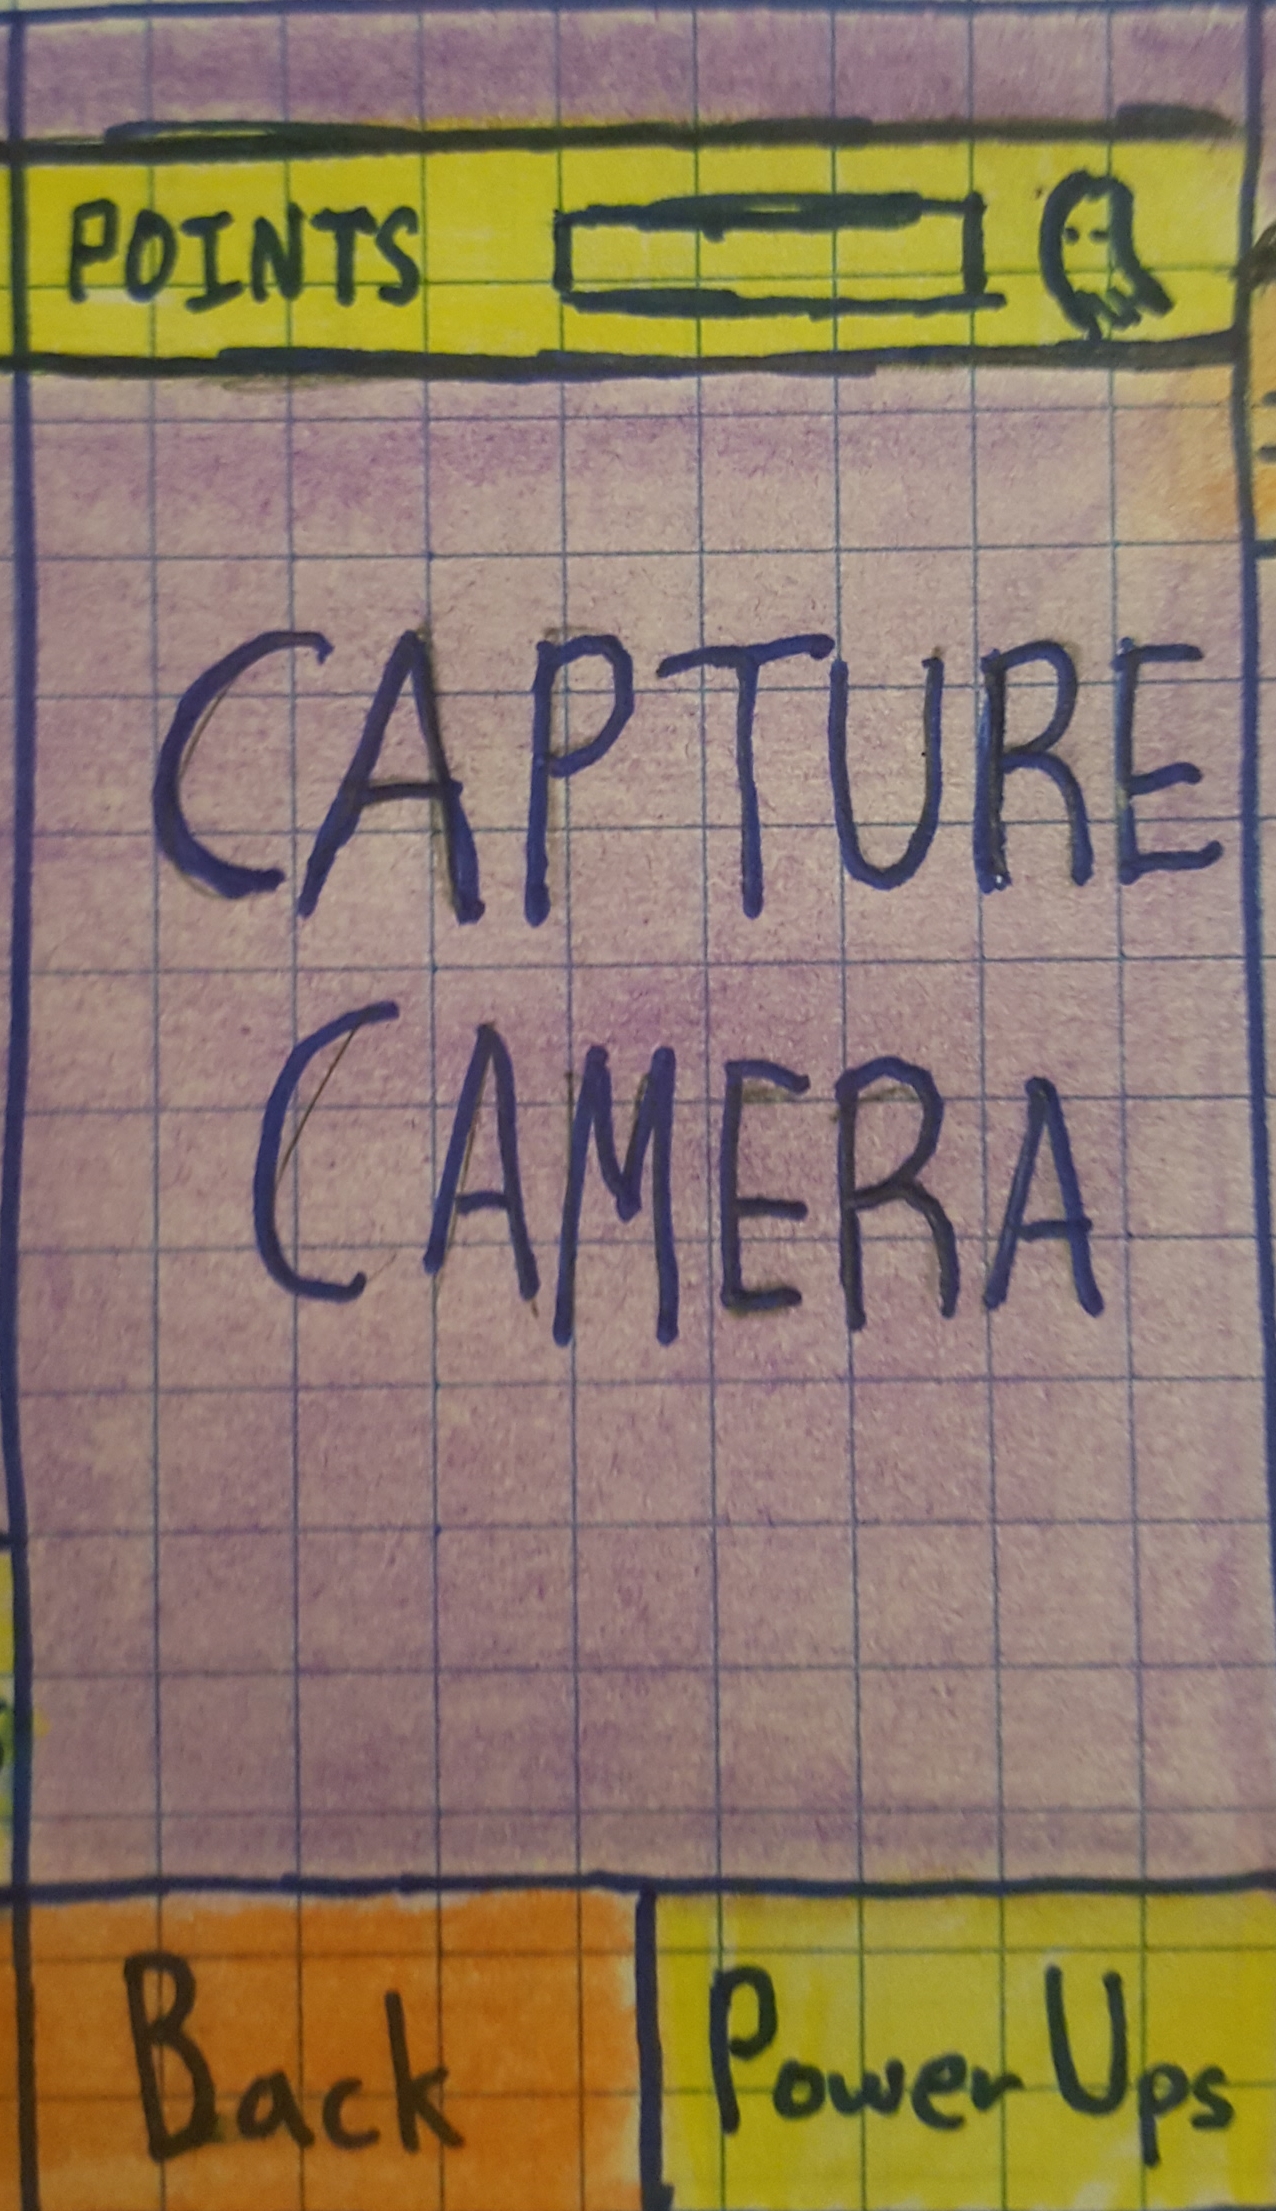 POINTS
CAPTURE
CAMERA
Back
Power Ups